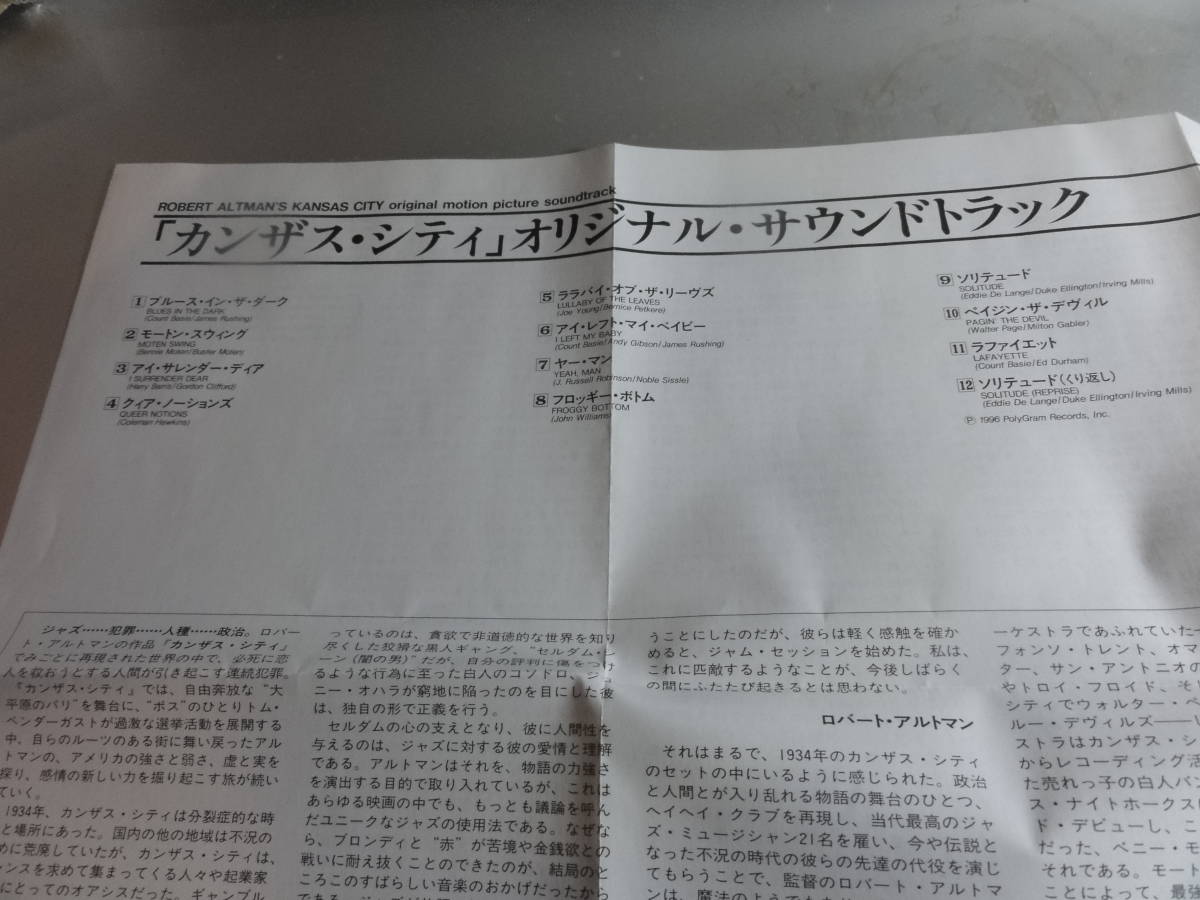 ROBERT ALTMAN'S KANSAS CITY original motion picture soundtrack
「カンザス・シティ」オリジナル・サウンドトラック
1 ブルース・イン・ザ・ダーク
BLUES IN THE DARK
(Count Basie/James Rushing)
2 モートン・スウィング
MOTEN SWING
(Bennie Moten/Buster Moten)
3 アイ・サレンダー・ディア
I SURRENDER DEAR
(Harry Barris/Gordon Clifford)
4 クィア・ノーションズ
QUEER NOTIONS
(Coleman Hawkins)
5 ララバイ・オブ・ザ・リーヴズ
LULLABY OF THE LEAVES
(Joe Young/Bernice Petkere)
6 アイ・レフト・マイ・ベイビー
I LEFT MY BABY
(Count Basie/Andy Gibson/James Rushing)
7 ヤー・マン
YEAH, MAN
(J. Russell Robinson/Noble Sissle)
8 フロッギー・ボトム
FROGGY BOTTOM
(John Williams)
9 ソリテュード
SOLITUDE
(Eddie De Lange/Duke Ellington/Irving Mills)
10 ペイジン・ザ・デヴィル
PAGIN' THE DEVIL
(Walter Page/Milton Gabler)
11 ラファイエット
LAFAYETTE
(Count Basie/Ed Durham)
12 ソリテュード(くり返し)
SOLITUDE (REPRISE)
(Eddie De Lange/Duke Ellington/Irving Mills)
Ⓟ 1996 PolyGram Records, Inc.
ジャズ……犯罪……人種……政治。ロバー
ト・アルトマンの作品『カンザス・シティ』
でみごとに再現された世界の中で、必死に恋
人を救おうとする人間が引き起こす連続犯罪。
『カンザス・シティ』では、自由奔放な“大
平原のパリ”を舞台に、“ボス”のひとりトム・
ペンダーガストが過激な選挙活動を展開する
中、自らのルーツのある街に舞い戻ったアル
トマンの、アメリカの強さと弱さ、虚と実を
探り、感情の新しい力を掘り起こす旅が続い
ていく。
1934年、カンザス・シティは分裂症的な時
と場所にあった。国内の他の地域は不況の
めに荒廃していたが、カンザス・シティは、
ャンスを求めて集まってくる人々や起業家
にとってのオアシスだった。ギャンブル
っているのは、貪欲で非道徳的な世界を知り
尽くした狡猾な黒人ギャング、“セルダム・シ
ーン(闇の男)”だが、自分の評判に傷をつけ
るような行為に至った白人のコソドロ、ジョ
ニー・オハラが窮地に陥ったのを目にした彼
は、独自の形で正義を行う。
セルダムの心の支えとなり、彼に人間性を
与えるのは、ジャズに対する彼の愛情と理解
である。アルトマンはそれを、物語の力強さ
を演出する目的で取り入れているが、これは
あらゆる映画の中でも、もっとも議論を呼ん
だユニークなジャズの使用法である。なぜな
ら、ブロンディと“赤”が苦境や金銭欲との
戦いに耐え抜くことのできたのが、結局のと
ころこのすばらしい音楽のおかげだったから
うことにしたのだが、彼らは軽く感触を確か
めると、ジャム・セッションを始めた。私は、
これに匹敵するようなことが、今後しばらく
の間にふたたび起きるとは思わない。
ロバート・アルトマン
それはまるで、1934年のカンザス・シティ
のセットの中にいるように感じられた。政治
と人間とが入り乱れる物語の舞台のひとつ、
ヘイヘイ・クラブを再現し、当代最高のジャ
ズ・ミュージシャン21名を雇い、今や伝説と
なった不況の時代の彼らの先達の代役を演じ
てもらうことで、監督のロバート・アルトマ
ンは、魔法のような
ーケストラであふれていた
フォンソ・トレント、オマ
ター、サン・アントニオの
やトロイ・フロイド、そし
シティでウォルター・ペ
ルー・デヴィルズ――
ストラはカンザス・シ
からレコーディング活
た売れっ子の白人バン
ス・ナイトホークス
ド・デビューし、こ
だった、ベニー・モ
それである。モート
ことによって、最強